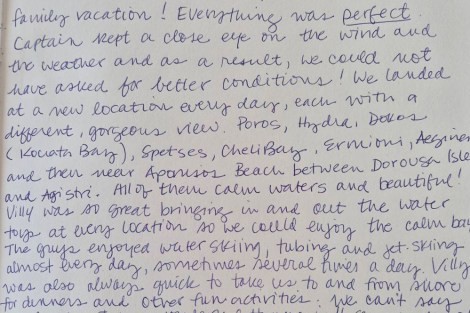 family vacation! Everything was perfect.
Captain kept a close eye on the wind and
the weather and as a result, we could not
have asked for better conditions! We landed
at a new location every day, each with a
different, gorgeous view. Poros, Hydra, Dokos
(Kouata Bay), Spetses, Cheli Bay, Ermioni, Aeginea
and then near Aponisos Beach between Dorousa Isle
and Agistri. All of them calm waters and beautiful!
Villy was so great bringing in and out the water
toys at every location so we could enjoy the calm bay
The guys enjoyed water skiing, tubing and jet-skiing
almost every day, sometimes several times a day. Villy
was also always quick to take us to and from shore
for dinners and other fun activities. We can't say